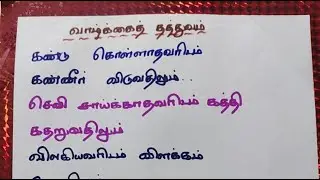 வாழ்க்கைத் தத்துவம்
கண்டு கொள்ளாதவரியம்
கண்ணீர் விடுவதிலும்...
செவி சாய்க்காதவரியம் கத்தி
கதறுவதிலும்
விலகியவரியம் விளக்கம்